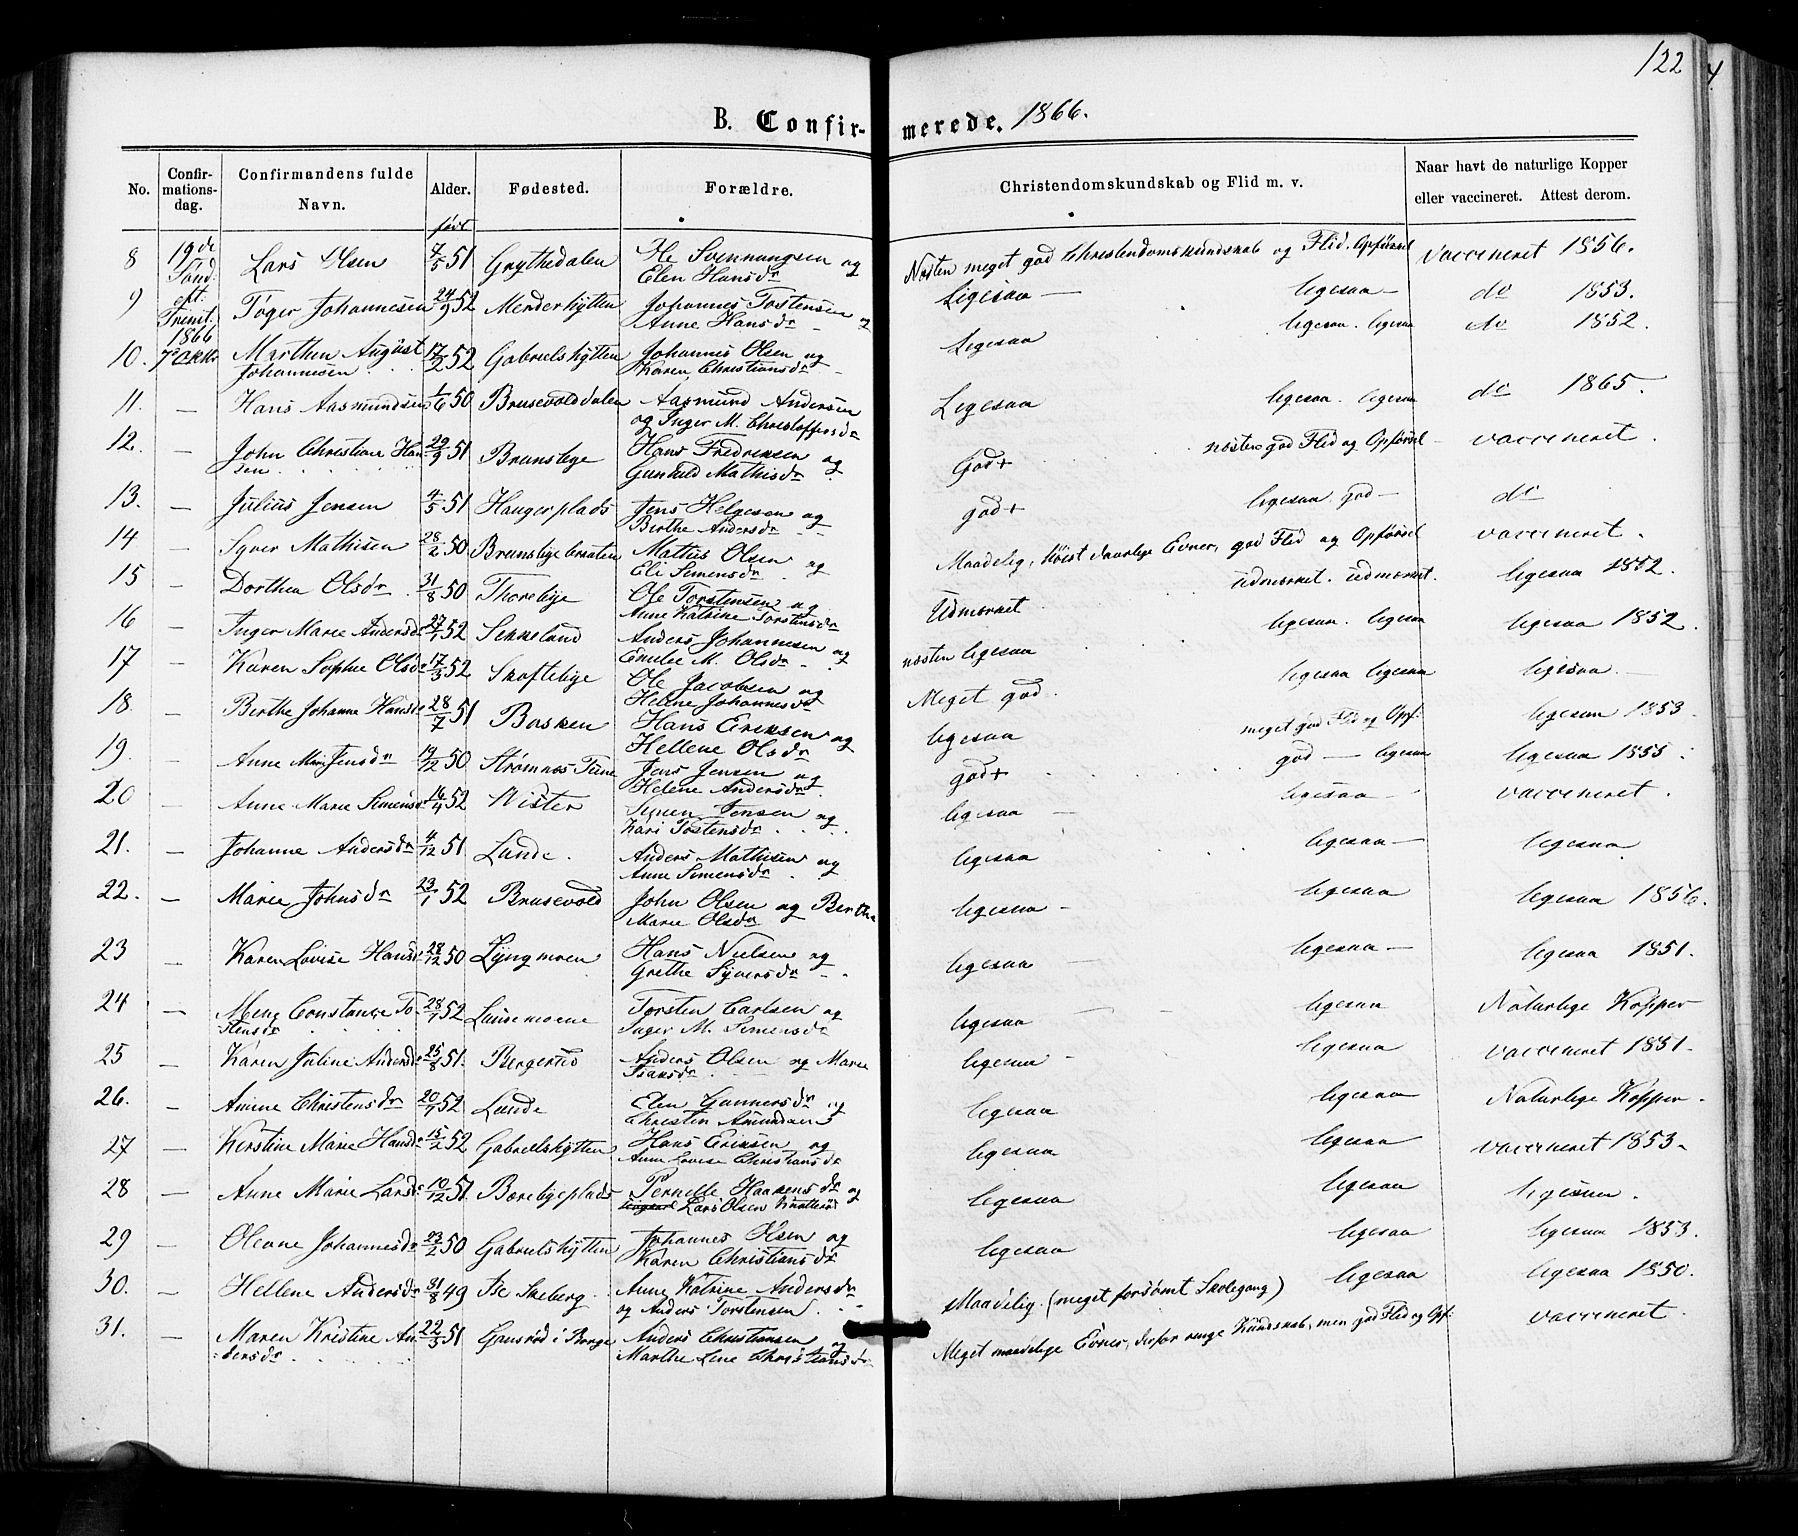 122
B. Confir- merede. 1866.
No. Confir-mations-dag. Confirmandens fulde Navn. Alder. Fødested. Forældre. Christendomskundskab og Flid m. v. Naar havt de naturlige Kopper eller vaccineret. Attest derom.
født
8 19de Sönd. eft. Trinit. 1866 7 Oktbr Lars Olsen 7/5 51 Grythedalen Ole Svennungsen og Elen Hansdr Nosten meget god Christendomskundskab og Flid, Opförsel vaccineret 1856.
9 Töger Johannesen 24/9 52 Menderhytten Johannes Torstensen og Anne Hansdr Ligesaa — ligesaa — do 1853.
10. Marthen August Johannesen 17/2 52 Gabrielshytten Johannes Olsen og Karen Christiansdr Ligesaa ligesaa. ligesaa do 1852.
11. — Hans Aasmundsen 1/6 50 Brusevolddalen Aasmund Andersen og Inger M. Christoffersdr Ligesaa ligesaa. ligesaa do 1865.
12. — John Christian Hansen 29/9 51 Brunsbye Hans Fredriksen og Gunhild Mathisdr God+ nosten god Flid og Opförsel — vaccineret.
13. — Julius Jensen 4/5 51 Haugerplads Jens Helgesen og Berthe Andersdr god+ ligesaa god — do
14 — Syver Mathisen 28/2 50 Brunsbyebraaten Mathis Olsen og Eli Simensdr Maadelig, höist daarlige Evner, god Flid og Opförsel vaccineret.
15 — Dorthea Olsdr 31/8 50 Thorebye Ole Torstensen og Anne Katrine Torstensdr Udmerket udmerket. udmerket. ligesaa 1852.
16 — Inger Marie Andersdr 27/1 52 Sekkelund Anders Johannesen og Emilie M. Olsdr nosten ligesaa ligesaa. ligesaa ligesaa 1852.
17 — Karen Sophie Olsdr 17/3 52 Skoftebye Ole Jacobsen og Helene Johannesdr Meget god. ligesaa ligesaa ligesaa. —
18. — Berthe Johanne Hansdr 28/7 51 Basken Hans Eriksen og Hellene Olsdr ligesaa meget god Flid og Opf: ligesaa 1853.
19. — Anne Marie Jensdr 50 Strømnes Tune Jens Jensen og Helene Andersdr god+ god — ligesaa ligesaa 1855
20 — Anne Marie Simensdr 16/4 52 Wister Simen Jensen og Kari Tostensdr ligesaa — ligesaa — vaccineret.
21. — Johanne Andersdr 4/12 51 Lande. Anders Mathisen og Anne Simensdr ligesaa ligesaa — ligesaa
22. — Maria Johnsdr 23/1 52 Brusevold John Olsen og Berthe Marie Olsdr ligesaa — ligesaa ligesaa 1856.
23 — Karen Lovise Hansdr 28/12 50 Lyngmoen Hans Nielsen og Grethe Syversdr ligesaa — ligesaa — ligesaa 1851.
24 — Constanse Tostensdr 28/1 52 Landemoene Torsten Carlsen og Inger M. Simensdr ligesaa — ligesaa Naturlige Kopper
25 — Karen Juline Andersdr 25/8 51. Bergerud Anders Olsen og Maren Isaksdr ligesaa — ligesaa vaccineret 1851.
26. — Anine Christensdr 20/1 52 Lande Elen Gunnersdr og Christen Amundsen ligesaa ligesaa Naturlige Kopper.
27 — Kirstine Marie Hansdr 15/2 52 Gabrielshytten Hans Eriksen og Anne Lovise Christiansdr ligesaa ligesaa vaccineret 1853.
28 — Anne Marie Larsdr 10/12 51 Borebyeplads Pernille Haakensdr og Lars Olsen ligesaa ligesaa ligesaa.
29 — Oleane Johannesdr 23/2 50 Gabrielshytten Johannes Olsen og Karen Christiansdr ligesaa ligesaa ligesaa 1853.
30. — Hellene Andersdr 31/8 49 Ise Skeberg. Anne Katrine Andersdr og Anders Torstensen Maadelig. (meget forsömt Skolegang) ligesaa ligesaa 1850.
31. — Maren Kristine Andersdr 22/3 51 Gansröd i Borge Anders Christiansen og Marthe Lene Christiansdr Meget maadelige Evner, derfor ringe Kundskab, men god Flid og Opf: vaccineret.